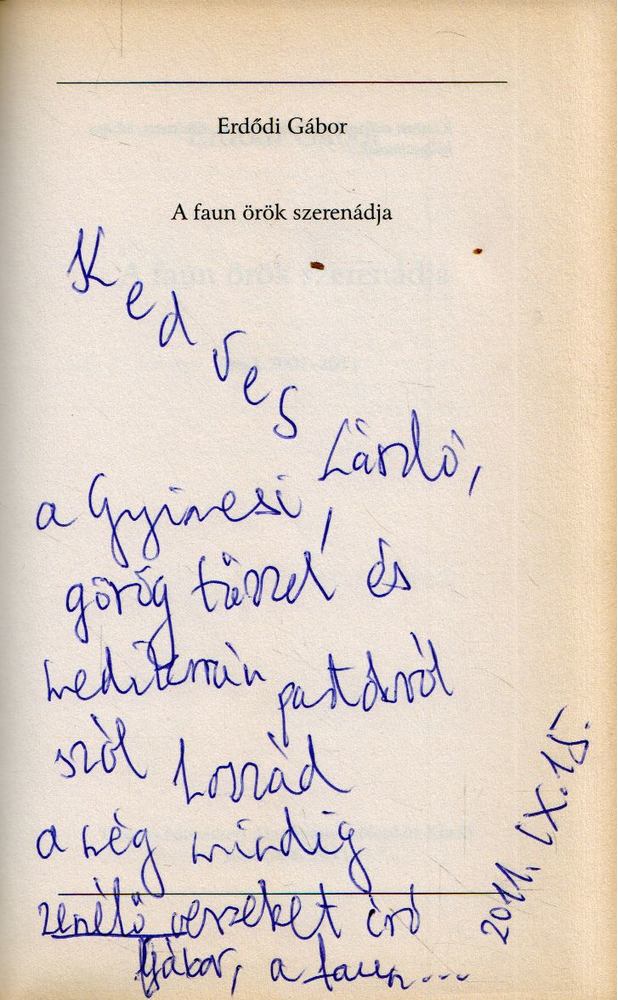 Erdődi Gábor
A faun örök szerenádja
Kedves
László,
a Gyimesi,
görög tűzzel és
mediterrán partokról
szól hozzád
a még mindig
zenélő verseket író
Gábor, a faun...
2011. IX. 15.